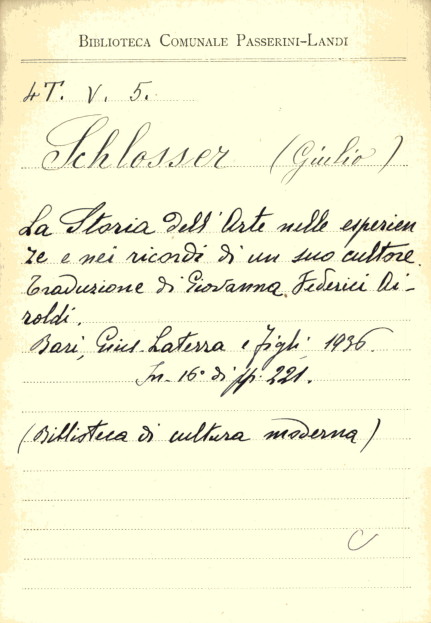 BIBLIOTECA COMUNALE PASSERINI-LANDI
4T. V. 5.
Schlosser (Giulio)
La Storia dell'Arte nelle esperien
ze e nei ricordi di un suo cultore.
Traduzione di Giovanna Federici Ai-
roldi.
Bari, Gius. Laterza e figli 1936.
In-16° di pp. 221.
(Biblioteca di cultura moderna)
C